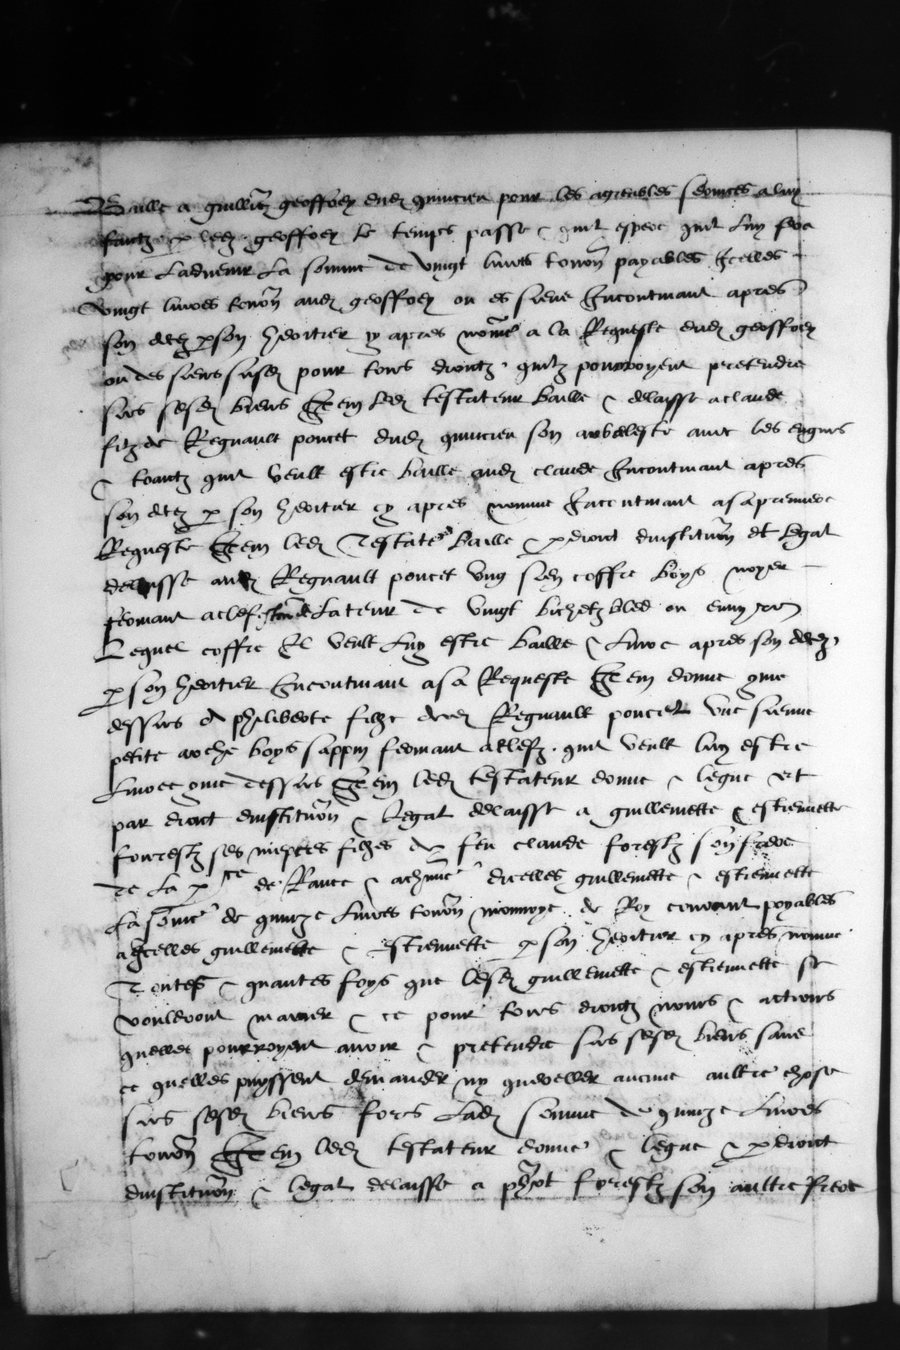 Baille a guille geoffroy dudz quincieu pour les agreables services a luy
faictz p ledz geoffroy le temps passe & quil espere quil luy fera
pour ladvenir la somme de vingt livres tournoys payables icelles
vingt livres tourn audz geoffroy ou es siens Incontinant apres
son decez p son heritier cy apres nomme a la Requeste dudz geoffroy
ou des siens susdz pour tous droictz quilz pourroyent pretendre
sus sesdz biens Item ledz testateur baille & delaisse a claude
filz de Regnault poncet dudz quincieu son arbeleste avec les engins
& toantz quil veult estre baille audz claude Incontinant apres
son decez p son heritier cy apres nomme Incontinant a sa premiere
Requeste Item ledz Testateur baille & p droict dinstitution et legat
delaisse audz Regnault poncet ung sien coffre boys noyer
fermant a clef de la teneur de vingt bichetz bled ou environ
Lequel coffre Il veult luy estre baille & livre apres son decez
p son heritier Incontinant a sa Requeste Item donne comme
dessus a philiberte fille dudz Regnault poncet une sienne
petite arche boys sappin fermant a clefz quil veult luy estre
livree comme dessus Item ledz testateur donne & legue et
par droict dinstitution & legat delaisse a guillemette & estiennette
forrestz ses niepces filles de feu claude forestz son frere
de la p de & dicelles guillemette & estiennette
la somme de quinze livres tourn monnoye de Roy courant payables
a icelles guillemette & estiennette p son heritier cy apres nomme
Toutes & quantes foys que lesdz guillemette & estiennette se
vouldront marier & ce pour tous droictz noms & actions
quelles pourroyent avoir & pretendre sus sesdz biens sans
ce quelles puyssent demander ny quereller aucune aultre chose
sus sesdz biens fors ladz somme de quinze livres
tourn Item ledz testateur donne & legue & p droict
dinstitution & legat delaisse a forestz son aultre frere